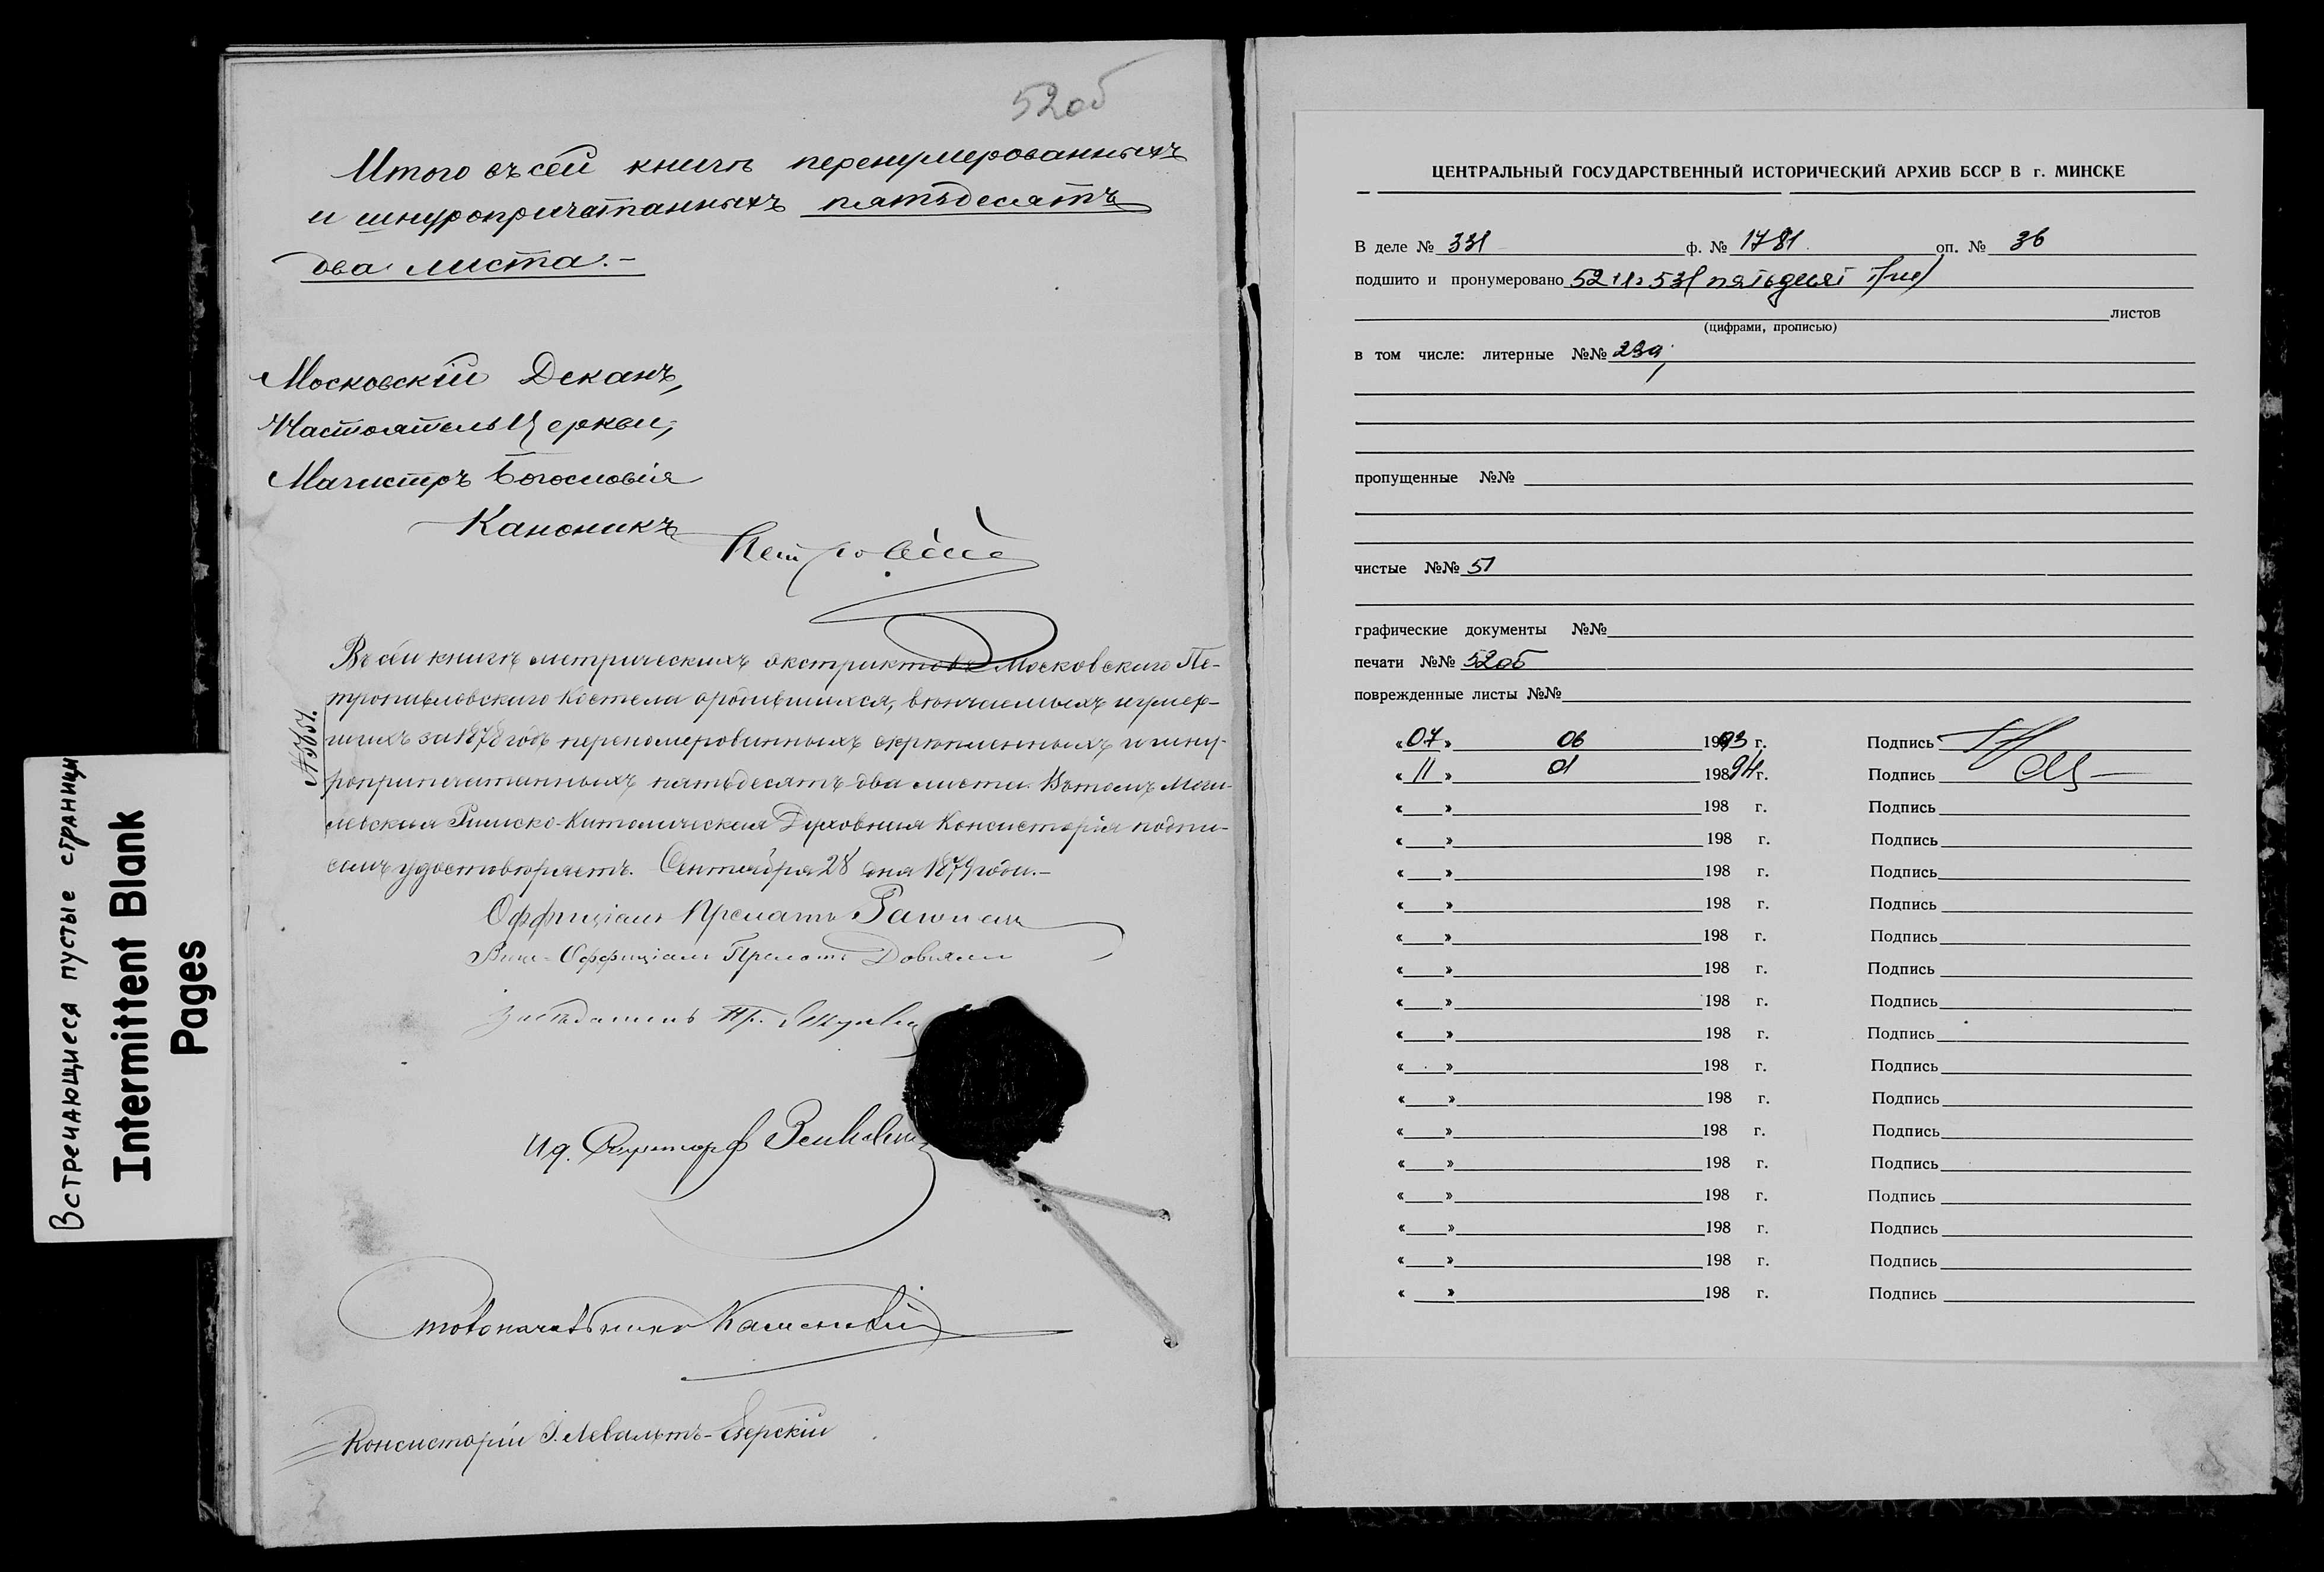 Встречающиеся пустые страницы
Intermittent Blank
Pages
52об
Итого въ сей книгѣ перенумерованныхъ
и шнуропричатанныхъ пятьдесятъ
два листа.-
Московскій Деканъ,
Настоятель Церкви,
Магистръ Богословія
Каноникъ
№ 5651.
Въ сей книгѣ метрическихъ экстрактовъ Московскаго Пе-
тропавловскаго Костела о родившихся, вѣнчаемыхъ и умер-
шихъ за 1878 годъ перенумерованныхъ скрѣпленныхъ и шну-
роприпечатанныхъ пятьдесятъ два листа. Въ томъ Моги-
левская Римско-Католическая Духовная Консисторія подпи-
сомъ удостовѣряетъ. Сентября 28 дня 1879 года.-
Оффиціалъ Прелатъ
Вице-Оффиціалъ Прелатъ Довялло
Засѣдатель Пр.
И.д.
Столоначальникъ
Консисторіи
ЦЕНТРАЛЬНЫЙ ГОСУДАРСТВЕННЫЙ ИСТОРИЧЕСКИЙ АРХИВ БССР В г. МИНСКЕ
В деле № 331 ф. № 1781 оп. № 36
подшито и пронумеровано 52+1=53 (пятьдесят три)
листов
(цифрами, прописью)
в том числе: литерные №№ 29а;
пропущенные №№
чистые №№ 51
графические документы №№
печати №№ 52об
поврежденные листы №№
«07» 06 1993 г. Подпись
«11» 01 19894 г. Подпись
« » 198 г. Подпись
« » 198 г. Подпись
« » 198 г. Подпись
« » 198 г. Подпись
« » 198 г. Подпись
« » 198 г. Подпись
« » 198 г. Подпись
« » 198 г. Подпись
« » 198 г. Подпись
« » 198 г. Подпись
« » 198 г. Подпись
« » 198 г. Подпись
« » 198 г. Подпись
« » 198 г. Подпись
« » 198 г. Подпись
« » 198 г. Подпись